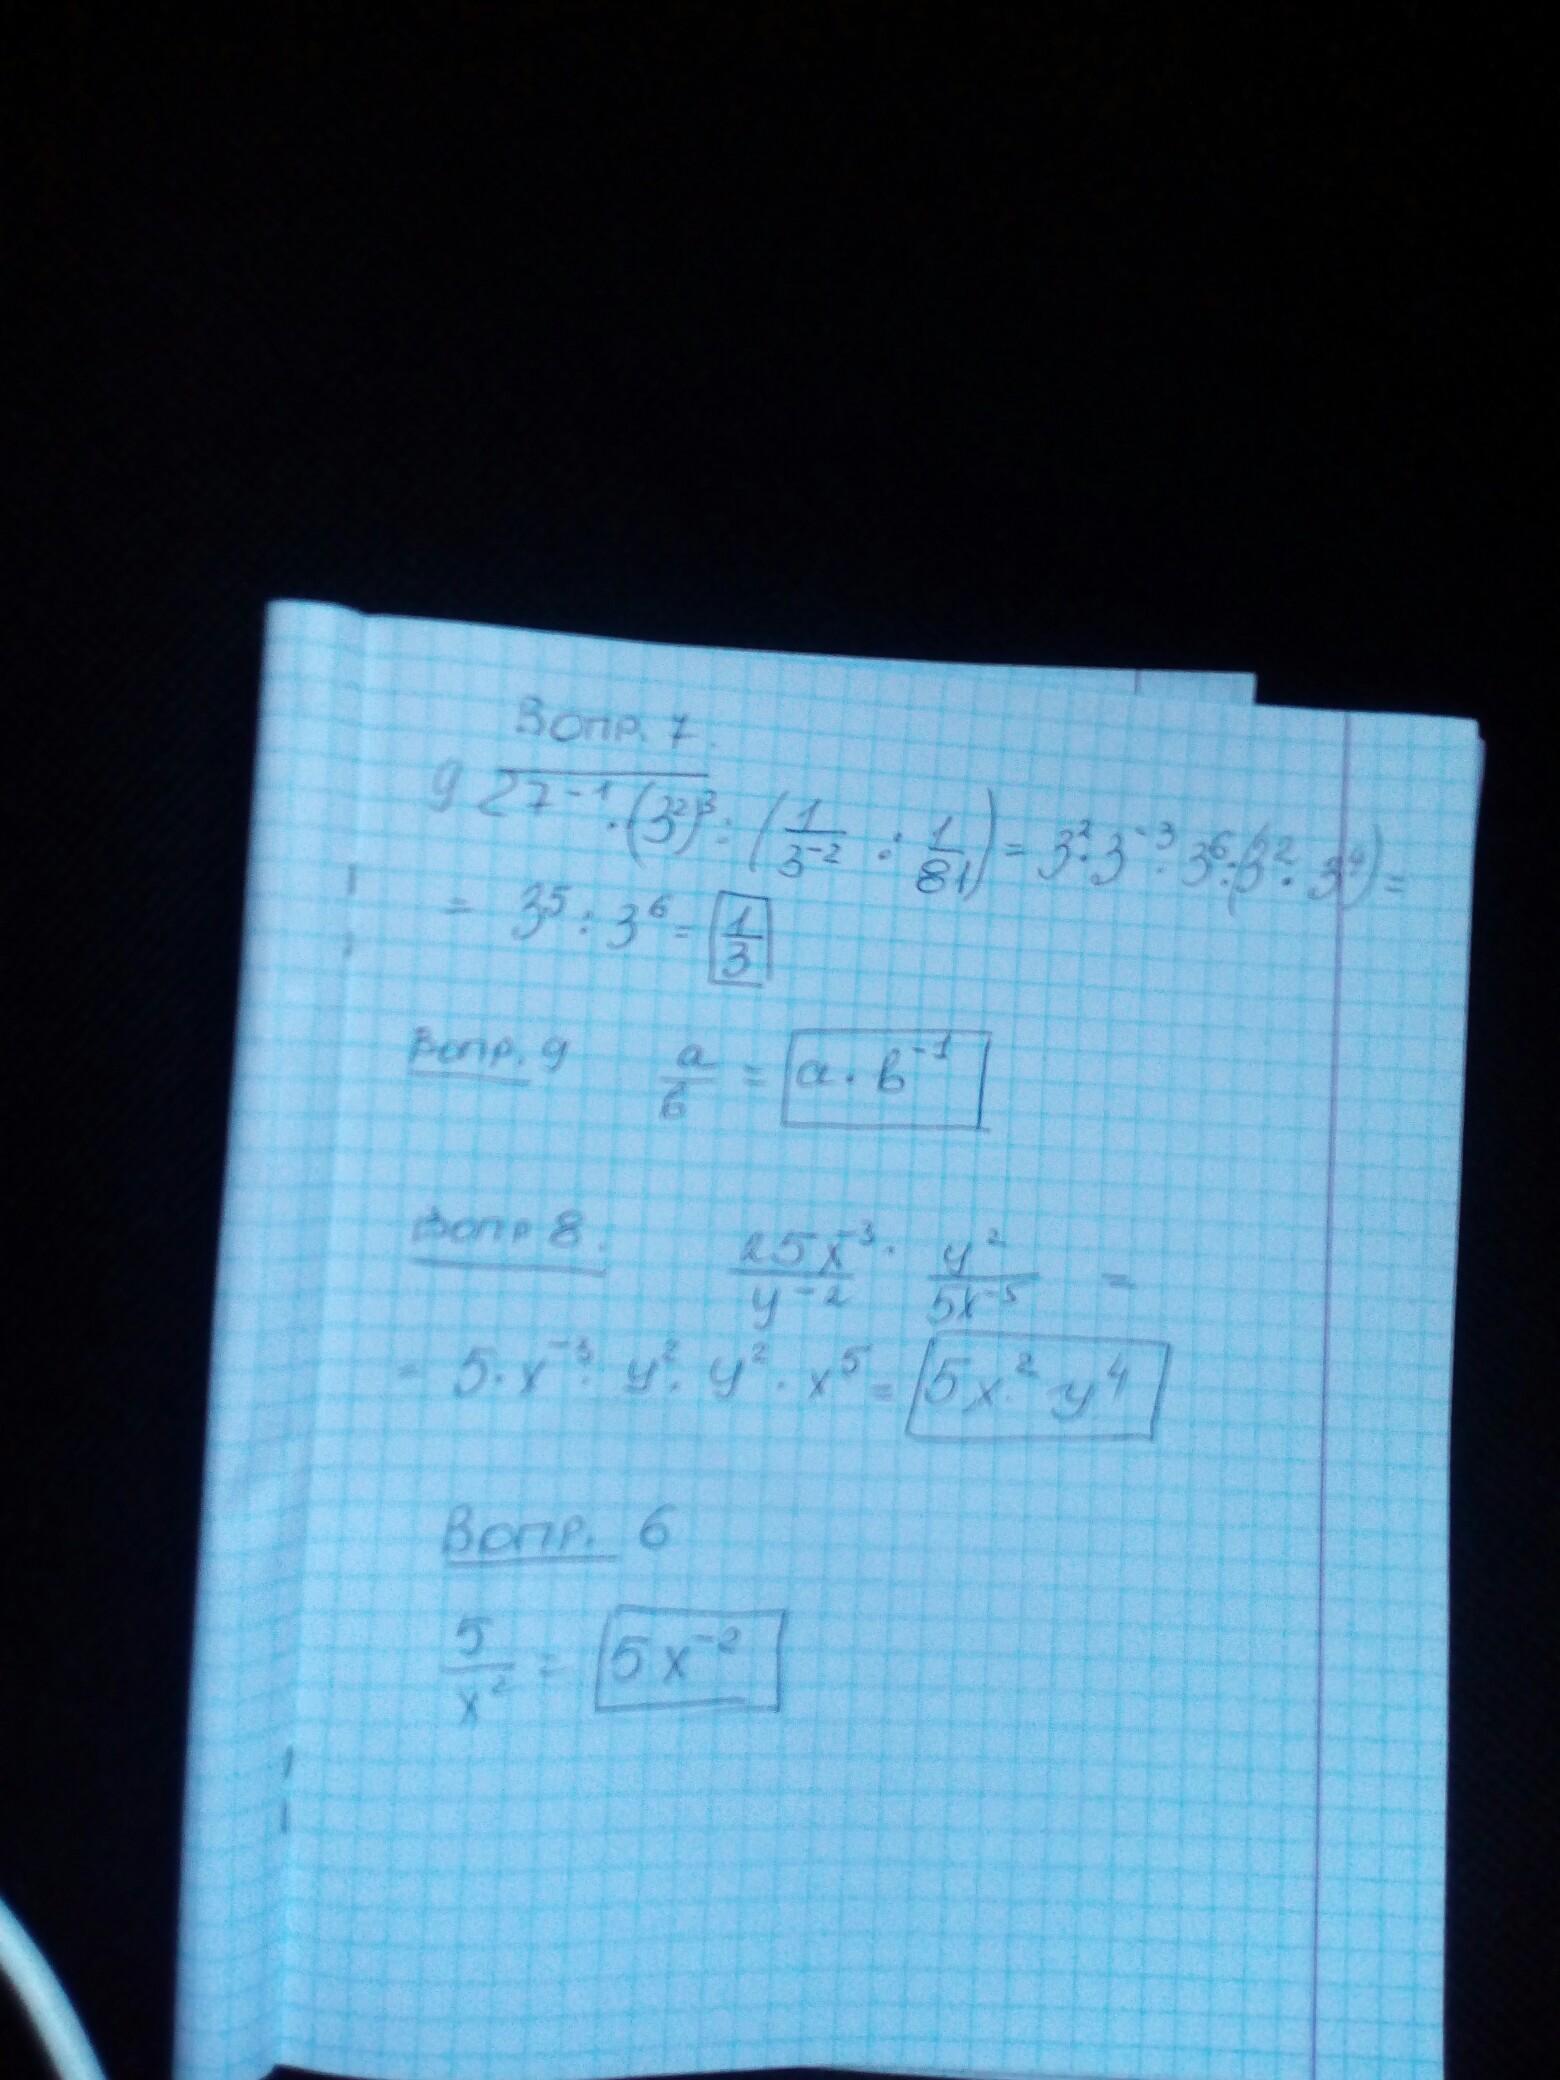 Вопр. 7.
9 27⁻¹ · (3²)³ : (1/3⁻² : 1/81) = 3² · 3⁻³ · 3⁶ : (3² · 3⁴) =
= 3⁵ : 3⁶ = 1/3
Вопр. 9 a/b = a · b⁻¹
Вопр 8. 25x⁻³/y⁻² · y²/5x⁻⁵ =
= 5 · x⁻³ · y² · y² · x⁵ = 5x² y⁴
Вопр. 6
5/x² = 5x⁻²